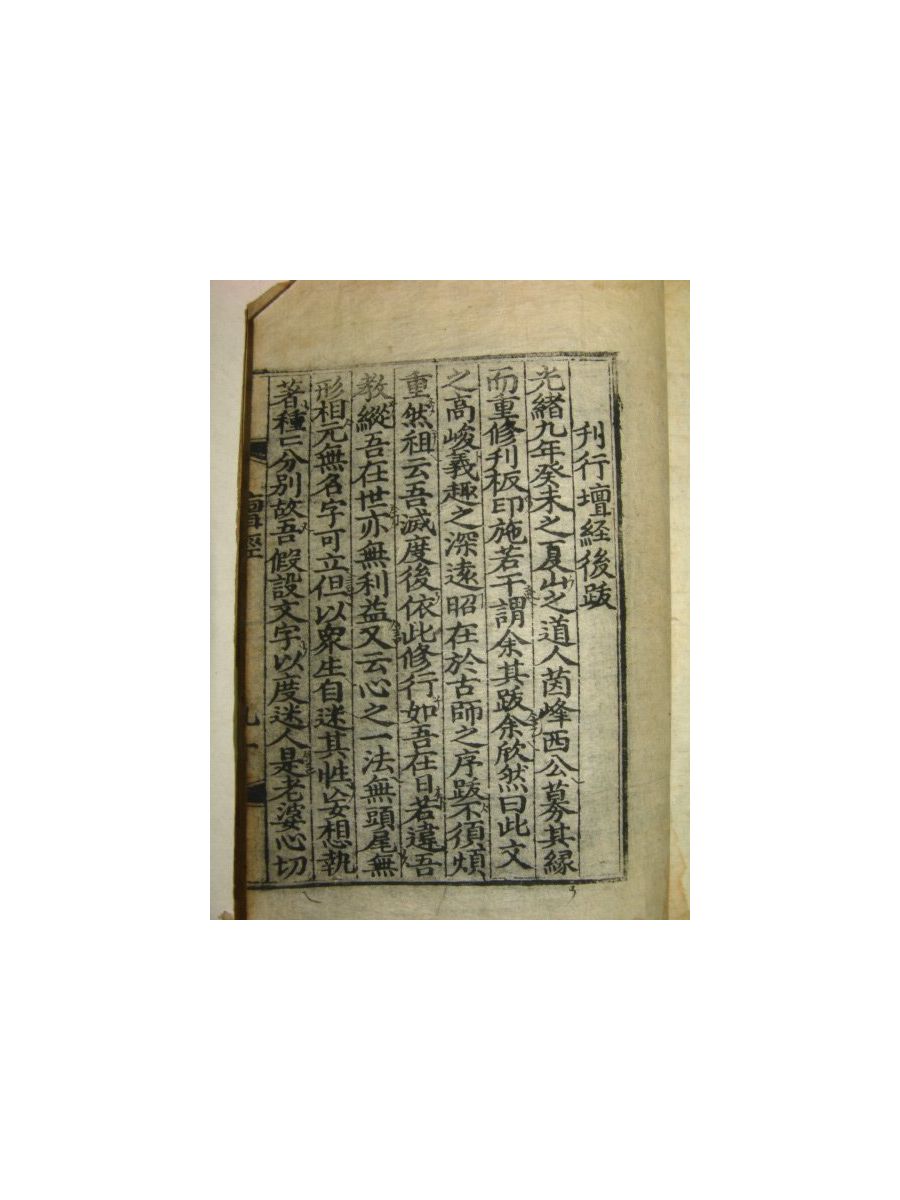 刋行壇経後跋
光緒九年癸未之夏山之道人茵峰西公募其緣
而重修刋板印施若干謂余其跋余欣然曰此文
之高峻義趣之深遠昭在於古師之序跋不須煩
重然祖云吾滅度後依此修行如吾在日若違吾
教縱吾在世亦無利益又云心之一法無頭尾無
形相元無名字可立但以衆生自迷其性妄想執
著種〻分別故吾假設文字以度迷人是老婆心切
壇經
九一